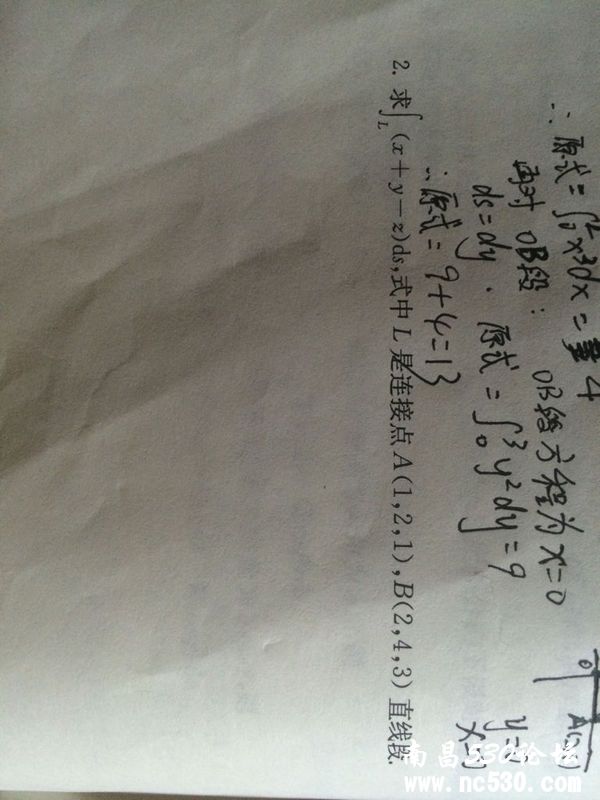 ∴原式=∫₀²x³dx=4
再对 OB段: OB段方程为x=0
ds=dy. 原式=∫₀³y²dy=9
∴原式=9+4=13
2. 求∫_L(x+y-z)ds,式中L是连接点A(1,2,1),B(2,4,3)直线段.
南昌530论坛
www.nc530.com